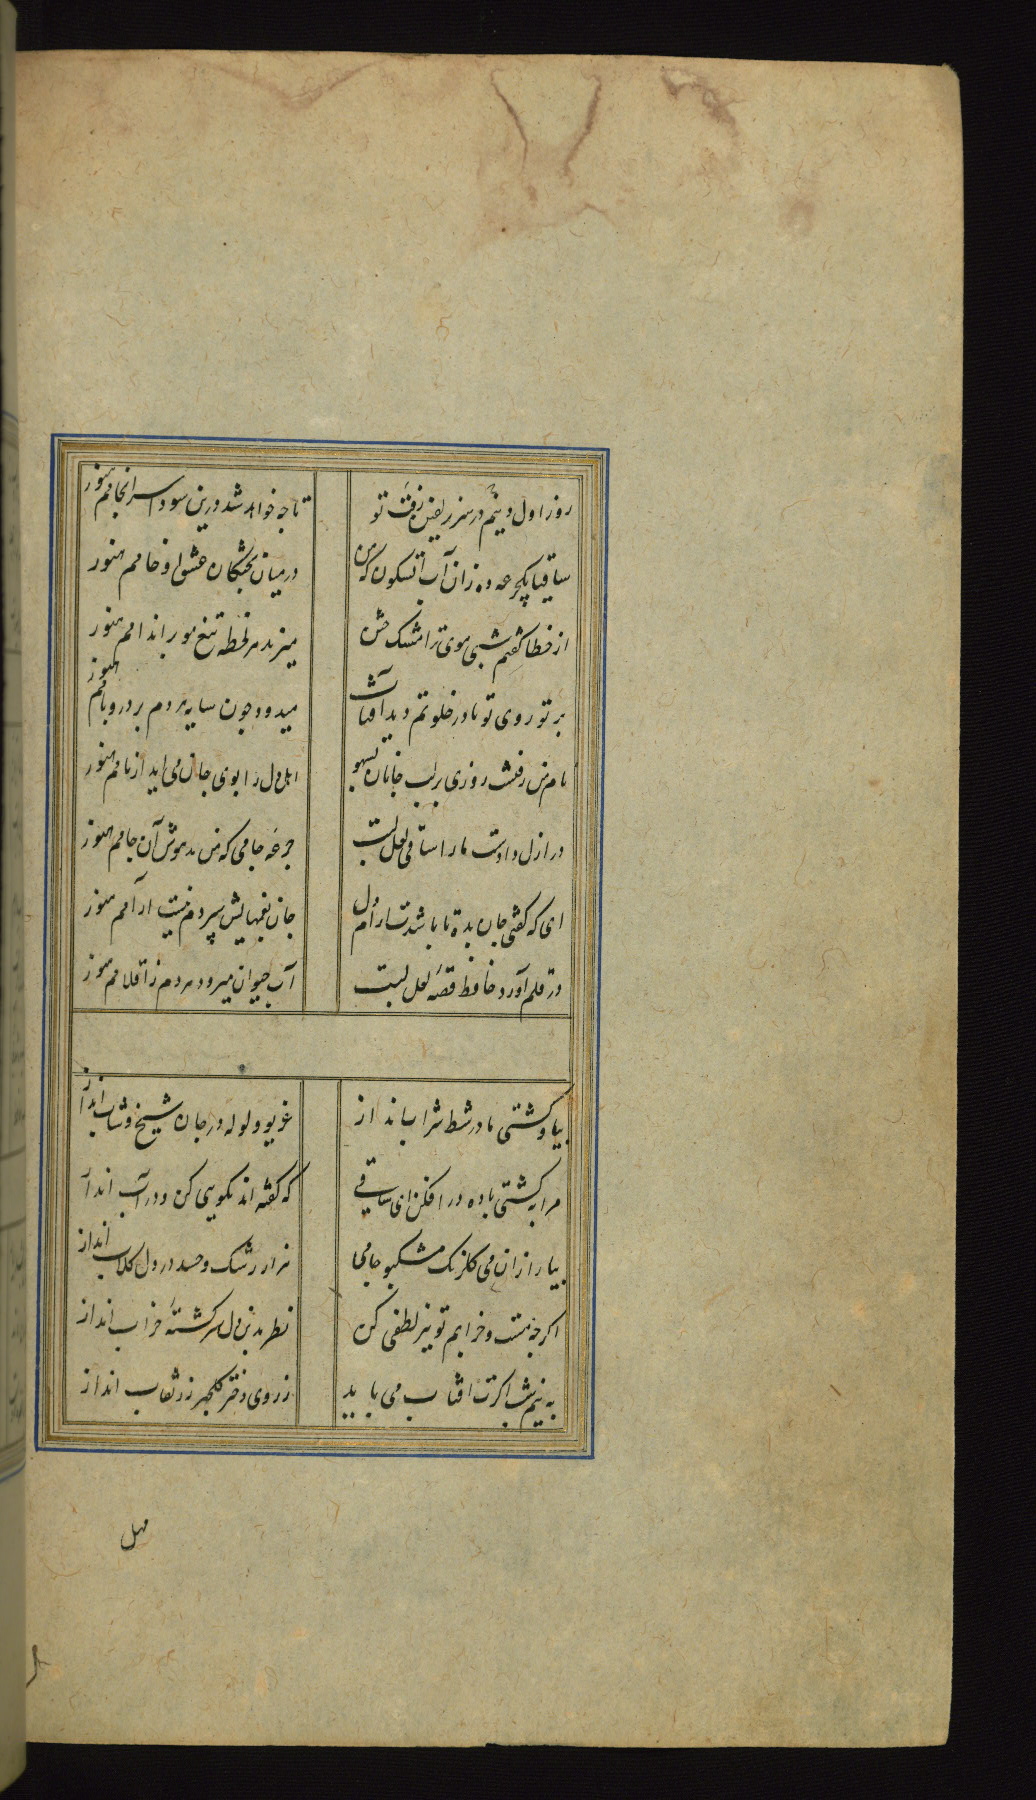 روز اول دینم در سر زلفین رفت تو تا چه خواهد شد درین سودا سرانجامم هنوز
ساقیا یکجرعه ده زان آب آتشکون که من در میان پختکان عشق او خامم هنوز
از خطا کفتم شبی موی ترا مشک ختن میزند هر لحظه تیغ مو بر اندامم هنوز
پرتو روی تو تا در خلوتم دید آفتاب میدود چون سایه هر دم بر در و بامم هنوز
نام من رفتست روزی بر لب جانان بسهو اهل دل را بوی جان می آید از نامم هنوز
در ازل دادست ما را ساقی لعل لبت جرعه جامی که من مدهوش آن جامم هنوز
ای که کفتی جان بده تا باشدت آرام دل جان بغمهایش سپردم نیست آرامم هنوز
در قلم آورد حافظ قصه لعل لبت آب حیوان میرود هر دم ز اقلامم هنوز
بیا و کشتی ما در شط شراب انداز غریو ولوله در جان شیخ و شاب انداز
مرا به کشتی باده در افکن ای ساقی که کفته اند نکویی کن و در آب انداز
بیار ازان می کلرنک مشکبو جامی شرار رشک و حسد در دل کلاب انداز
اکر چه مست و خرابم تو نیز لطفی کن نظر بدین دل سرکشته خراب انداز
به نیم شب اکرت افتاب می باید ز روی دختر کلچهر رز نقاب انداز
مهل